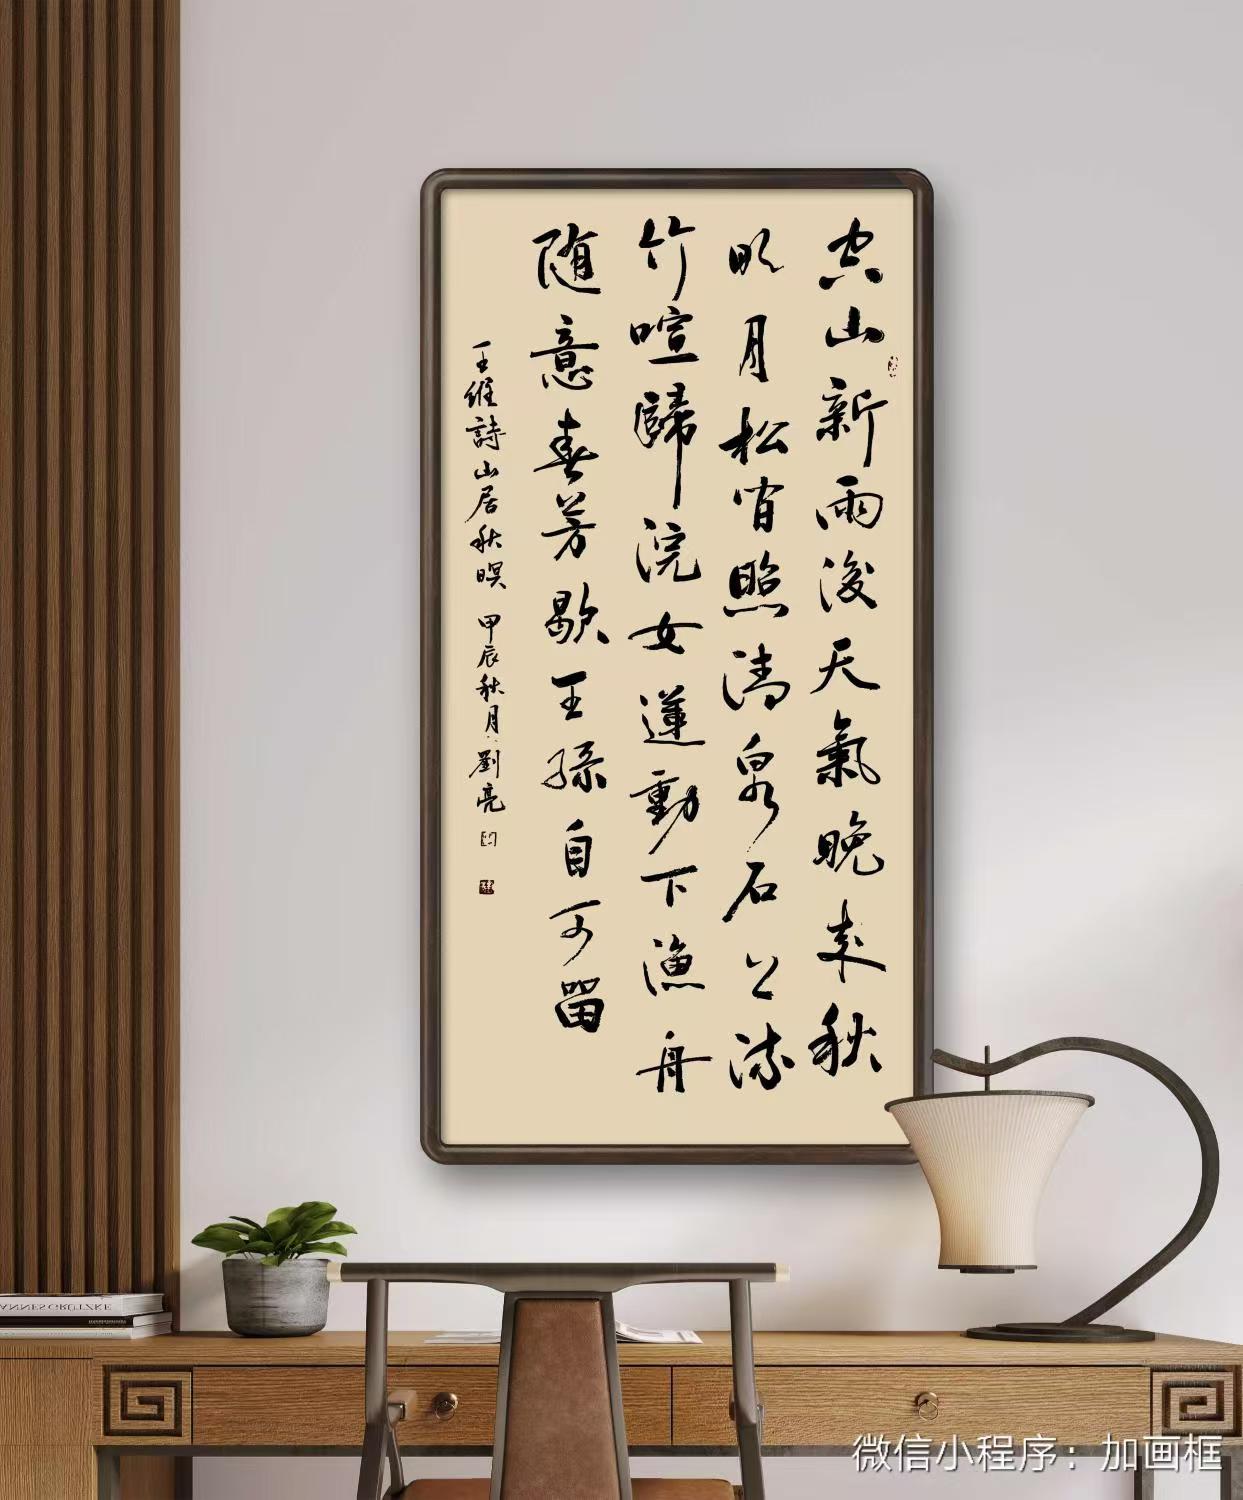 空山新雨後天氣晚来秋
明月松間照清泉石上流
竹喧歸浣女蓮動下漁舟
随意春芳歇王孫自可留
王維詩山居秋暝 甲辰秋月 劉亮
ANNES GRÜTZKE
微信小程序：加画框